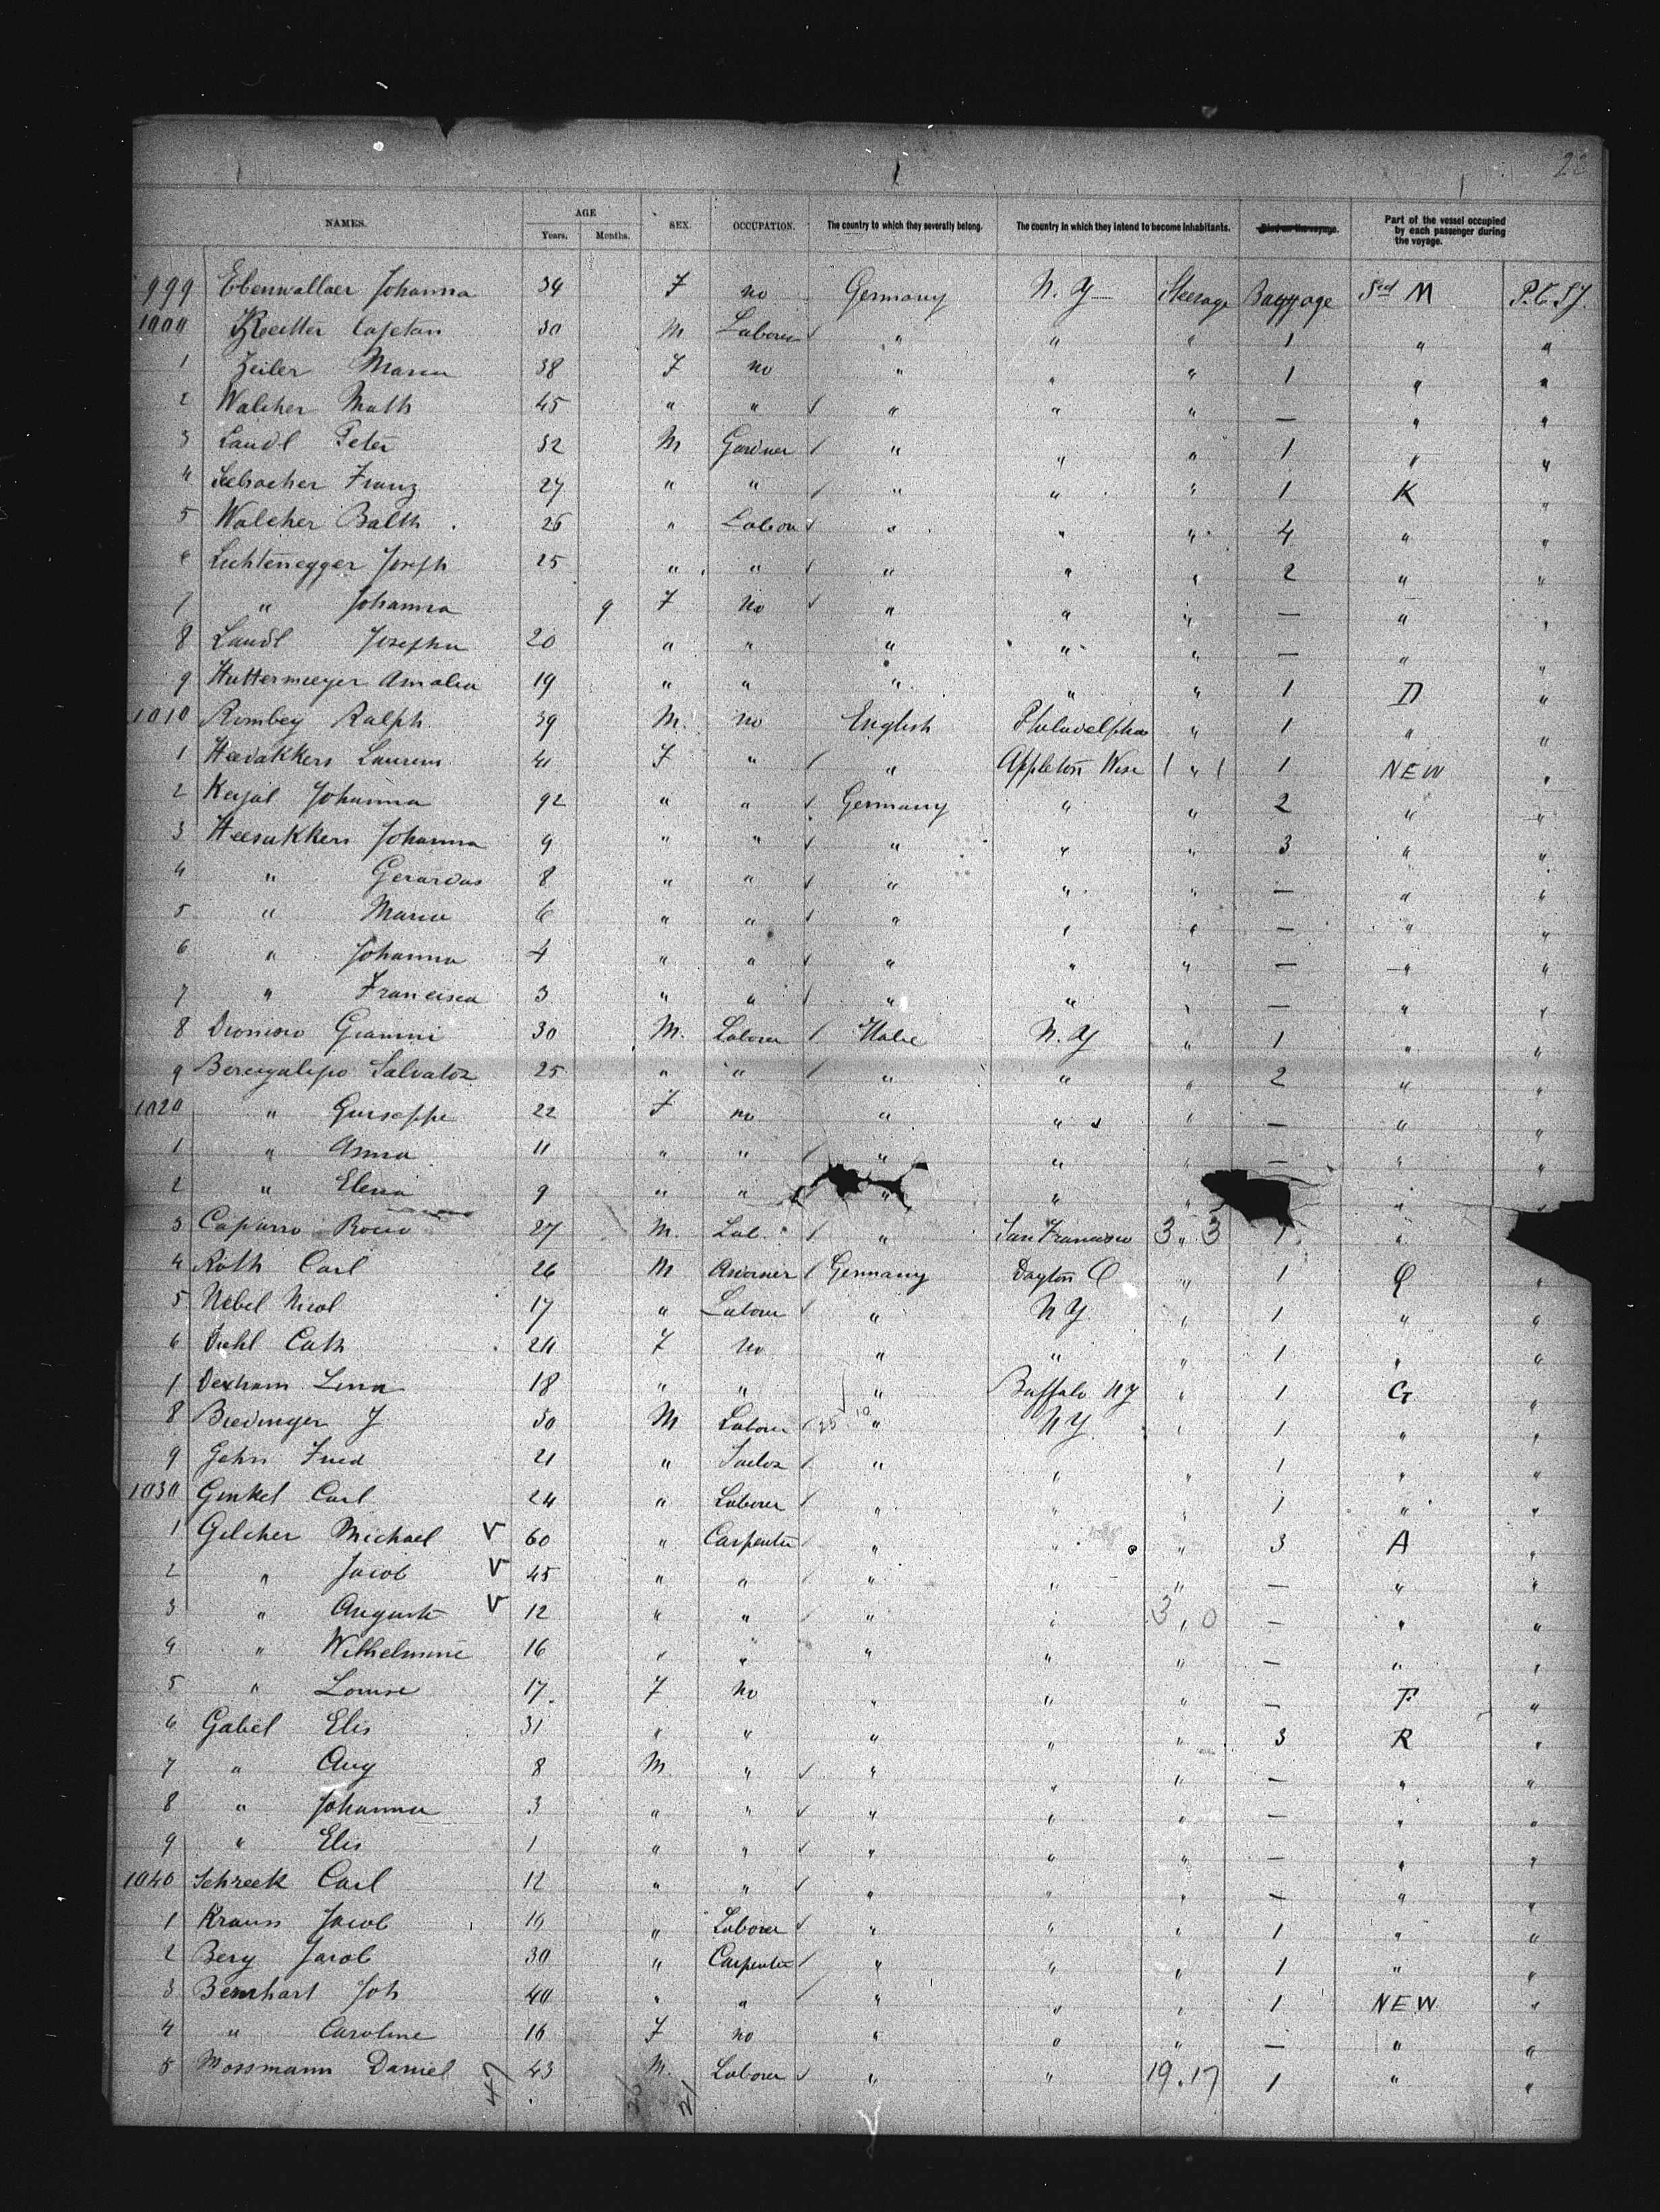 22
NAMES. AGE Years. Months. SEX. OCCUPATION. The country to which they severally belong. The country in which they intend to become inhabitants. Died on the voyage. Part of the vessel occupied by each passenger during the voyage.
999 Ebenwallaer Johanna 34 F no Germany N. Y. Steerage Baggage M
1000 Cajetan 30 M Laborer " " " 1 " "
1 Zeiler Maria 38 F no " " " 1 " "
2 Walcher Math 45 " " " " " — " "
3 Laudl Peter 32 M Gardner " " " 1 " "
4 Seebacher Franz 27 " " " " " 1 K "
5 Walcher Balth. 26 " Labou " " " 4 " "
6 Lichtenegger Joseph 25 " " " " " 2 " "
7 " Johanna 9 F No " " " — " "
8 Laudl Josepha 20 " " " " " — " "
9 Huttermeyer Amalia 19 " " " " " 1 D "
1010 Rimbey Ralph 39 M. no English Philadelphia " 1 " "
1 Laurens 41 F " " Appleton Wisc 1 " 1 1 NEW "
2 Johanna 92 " " Germany " " 2 " "
3 Heesakkers Johanna 9 " " " " " 3 " "
4 " Gerardus 8 " " " " " — " "
5 " Maria 6 " " " " " — " "
6 " Johanna 4 " " " " " — " "
7 " Francisca 3 " " " " " — " "
8 Dionisio Giammi 30 M. Laborer Italie N. Y " 1 " "
9 Salvator 25 " " " " " 2 " "
1020 " Guiseppe 22 F no " " " — " "
1 " Anna 11 " " " " " — " "
2 " Elena 9 " " " " " "
3 Capurro Rocco 27 M. Lab. " San Francisco 3 " 3 1 "
4 Roth Carl 26 M Germany Dayton O " 1 Q "
5 Nebel Nicol 17 " Laborer " N Y. " 1 " "
6 Diehl Cath 24 F No " " " 1 " "
7 Dexham Lina 18 " " " Buffalo NY " 1 G "
8 Biedinger J 50 M Laborer " N Y. " 1 " "
9 Gehn Fred 21 " Sailor " " " 1 " "
1030 Ginkel Carl 24 " Laborer " " " 1 " "
1 Gilcher Michael V 60 " Carpenter " " " 3 A "
2 " Jacob V 45 " " " " " — " "
3 " August V 12 " " " " 3 " 0 — " "
4 " Wilhelmine 16 " " " " " — " "
5 " Louise 17. F No " " " — F "
6 Gabel Elis 31 " " " " " 3 R "
7 " Aug 8 M. " " " " — " "
8 " Johanna 3 " " " " " — " "
9 " Elis 1 " " " " " — " "
1040 Schreek Carl 12 " " " " " — " "
1 Kraus Jacob 16 " Laborer " " " 1 " "
2 Berg Jacob 30 " Carpenter " " " 1 " "
3 Bernhart Joh 40 " " " " " 1 NEW "
4 " Caroline 16 F no " " " — " "
5 Mossmann Daniel 43 M. Laborer " " 19.17 1 " "
47 26 21